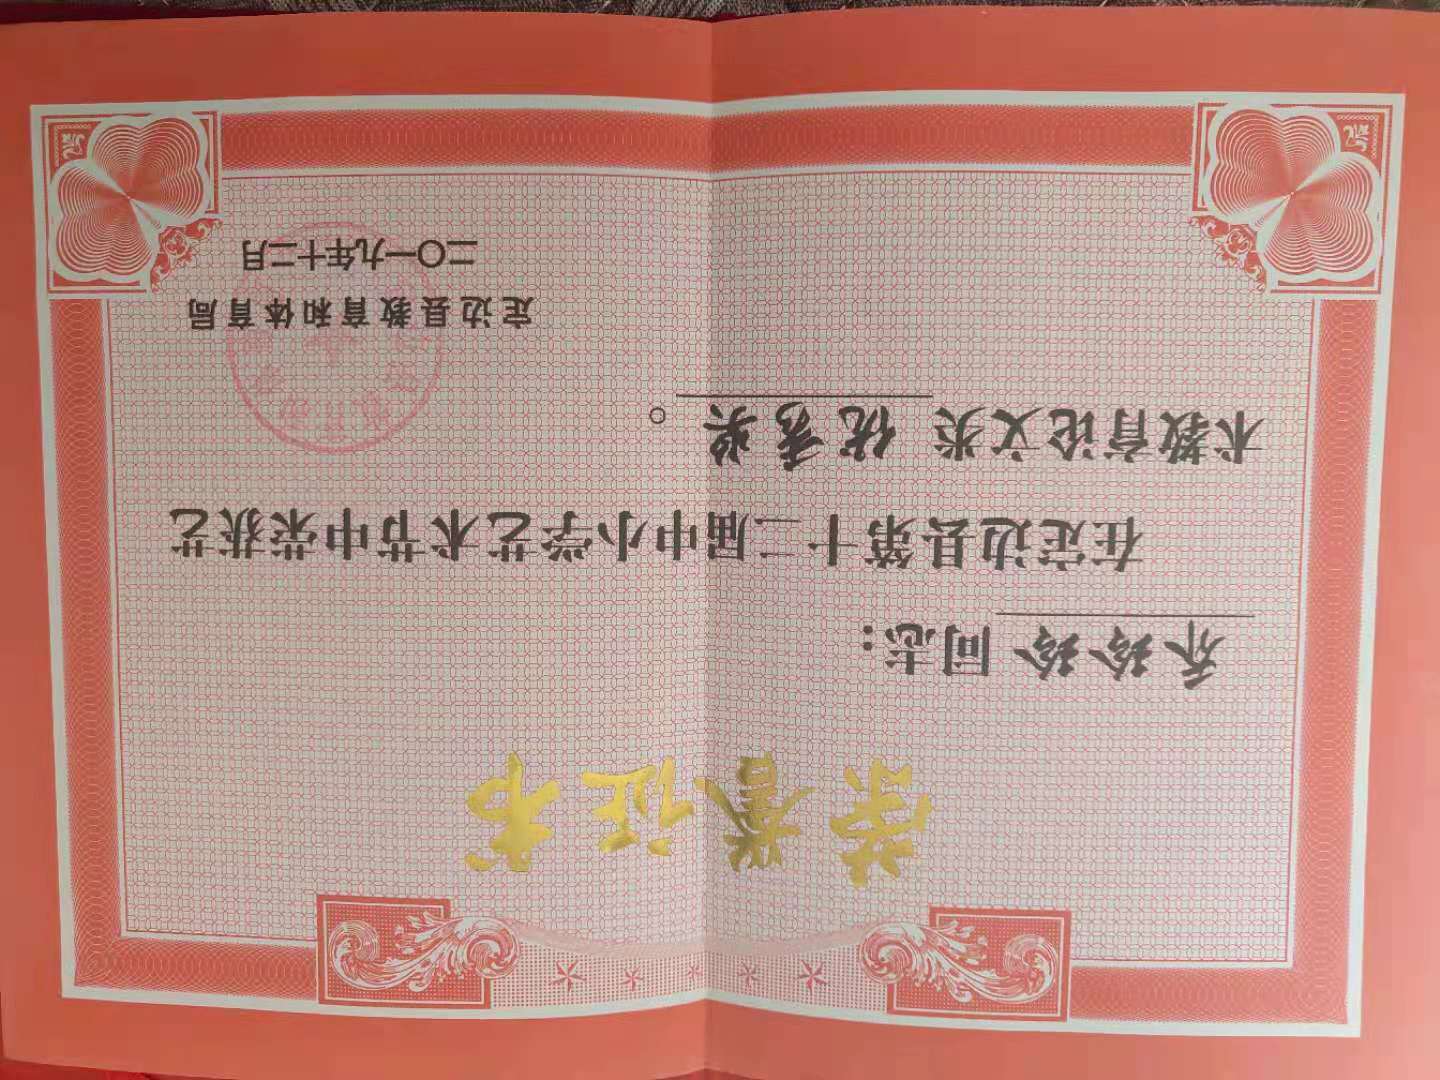 荣誉证书
乔玲玲同志：
在定边县第十二届中小学艺术节中荣获艺
术教育论文类优秀奖。
定边县教育和体育局
二〇一九年十二月